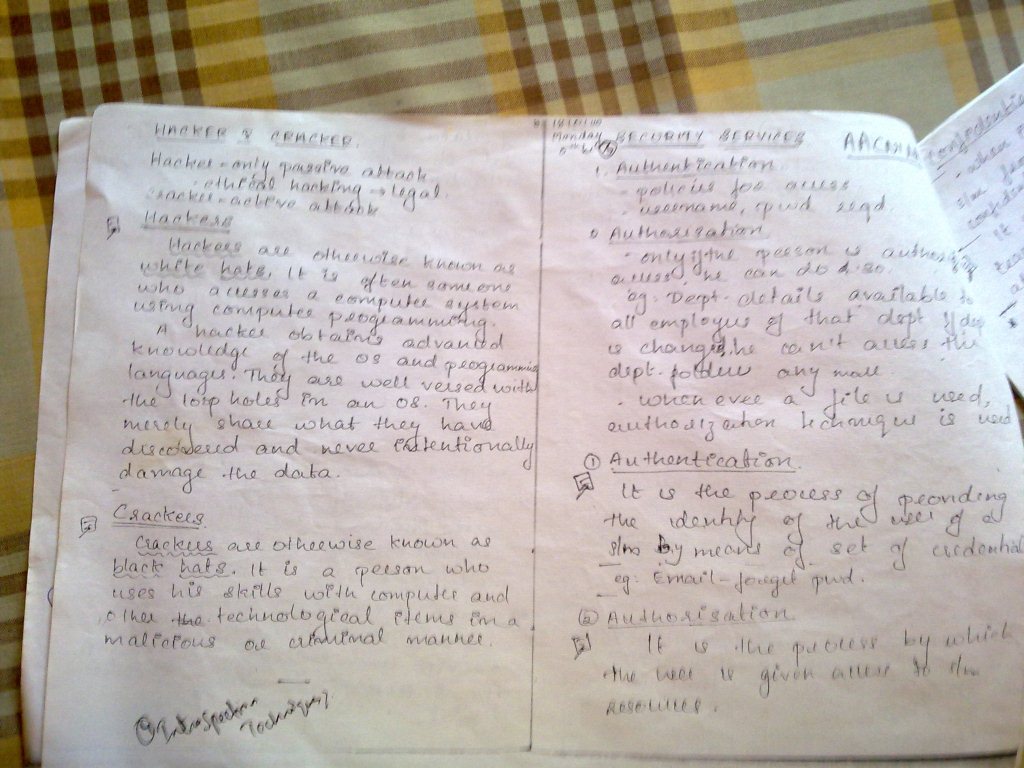 HACKER & CRACKER.
Hacker - only passive attack
- ethical hacking → legal.
Cracker - active attack
Hackers
Hackers are otherwise known as
white hats. It is often someone
who accesses a computer system
using computer programming.
A hacker obtains advanced
knowledge of the OS and programming
languages. They are well versed with
the loop holes in an OS. They
merely share what they have
discovered and never intentionally
damage the data.
Crackers
Crackers are otherwise known as
black hats. It is a person who
uses his skills with computer and
other the technological items in a
malicious or criminal manner.
Techniques
Monday
SECURITY SERVICES
1. Authentication
- policies for access
- username, pwd reqd.
Authorisation
- only if the person is
access, he can do so.
eg: Dept. details available to
all employees of that dept. If dep
is changed, he can't access the
dept. folder any more.
- whenever a file is used,
authorization technique is used
① Authentication.
It is the process of providing
the identity of the user of a
s/m by means of set of credential
eg: Email - forget pwd.
② Authorisation
It is the process by which
the user is given access to s/m
resources.